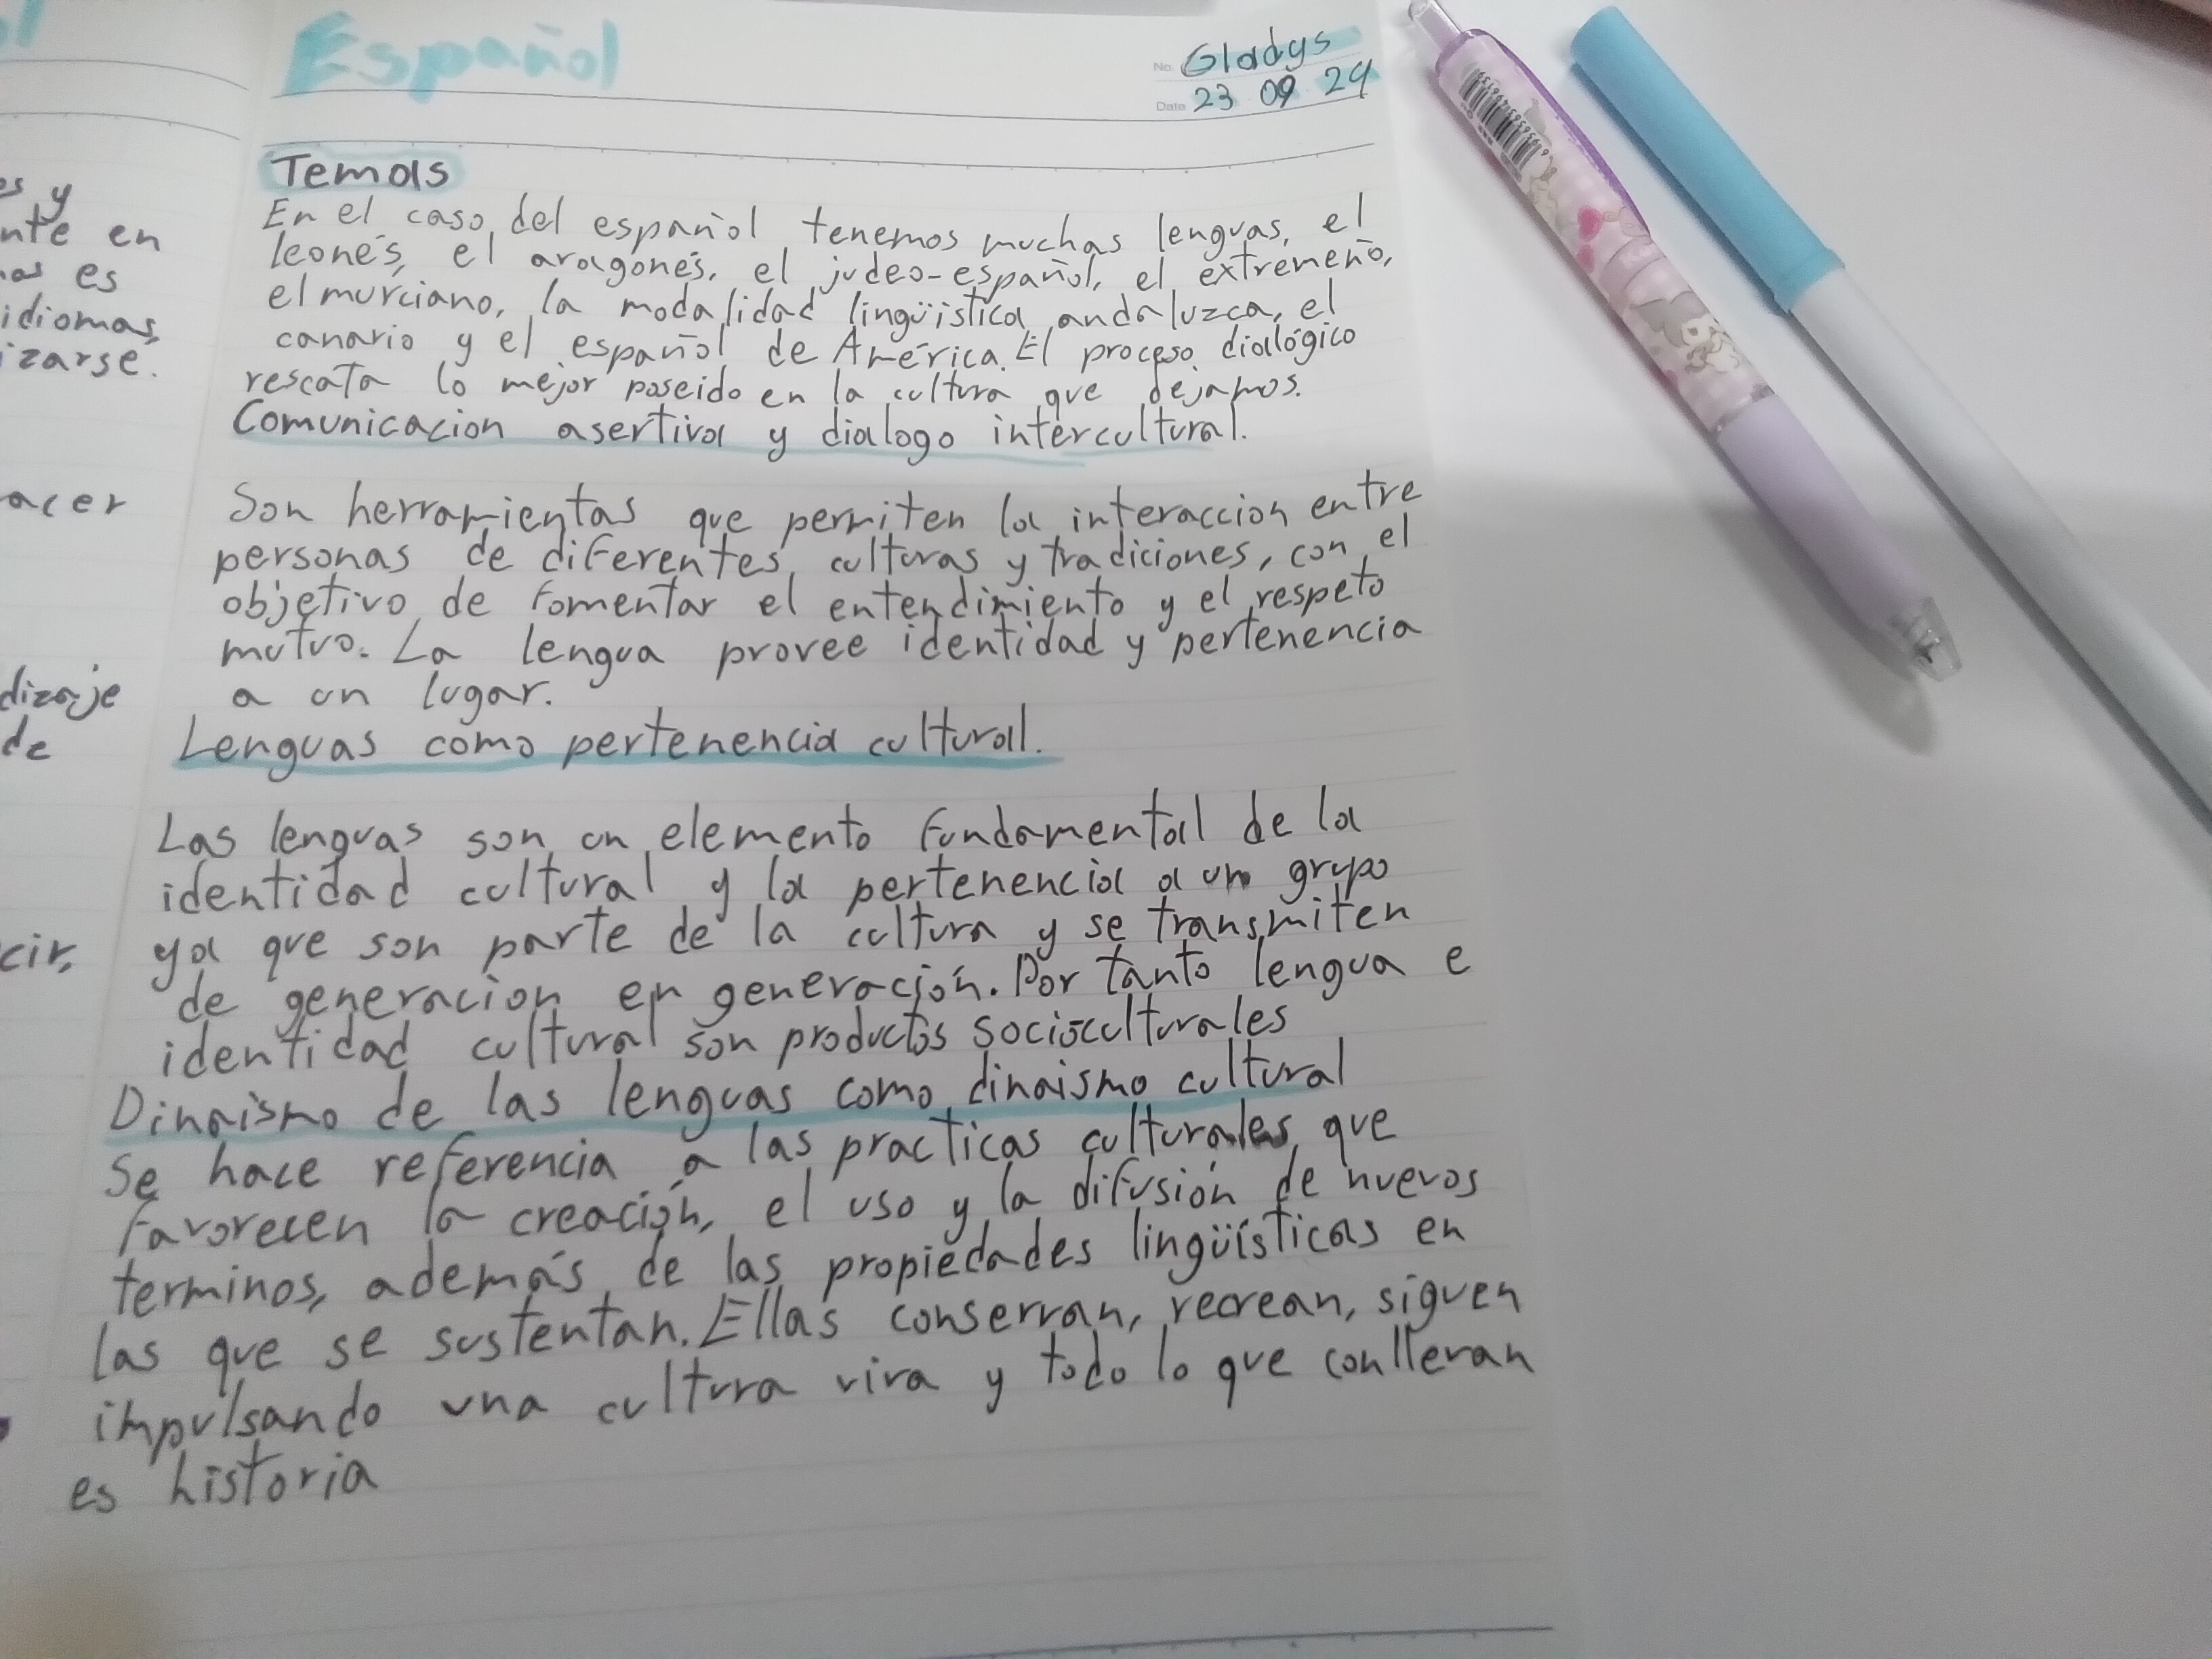 Español
No. Gladys
Date 23 09 24
Temas
En el caso del español tenemos muchas lenguas, el
leonés, el aragonés, el judeo-español, el extremeño,
el murciano, la modalidad lingüistica andaluzca, el
canario y el español de América. El proceso dialógico
rescata lo mejor poseido en la cultura que dejamos.
Comunicacion asertiva y dialogo intercultural.
Son herramientas que permiten la interaccion entre
personas de diferentes culturas y tradiciones, con el
objetivo de fomentar el entendimiento y el respeto
mutuo. La lengua provee identidad y pertenencia
a un lugar.
Lenguas como pertenencia cultural.
Las lenguas son un elemento fundamental de la
identidad cultural y la pertenencia a un grupo
ya que son parte de la cultura y se transmiten
de generacion en generación. Por tanto lengua e
identidad cultural son productos socioculturales
Dinaismo de las lenguas como dinaismo cultural
Se hace referencia a las practicas culturales que
favorecen la creación, el uso y la difusión de nuevos
terminos, además de las propiedades lingüísticas en
las que se sustentan. Ellas conservan, recrean, siguen
impulsando una cultura viva y todo lo que conlleran
es historia
es y
nte en
es
idiomas,
izarse.
acer
dizaje
de
cir,